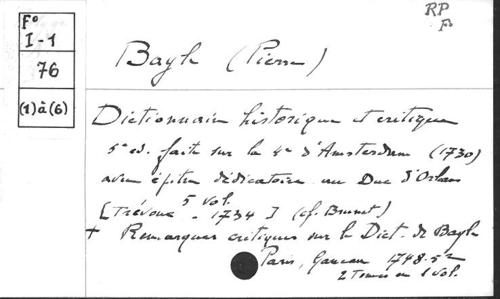 Fº
I-1
76
(1) à (6)
RP
Fº
Bayle (Pierre)
Dictionnaire historique et critique
5e ed. faite sur la 4e d'Amsterdam (1730)
avec épitre dédicatoire au Duc d'Orléans
5 vol.
[Trévoux - 1734] (cf. Brunet)
+ Remarques critiques sur le Dict. de Bayle
Paris, Ganeau 1748-52
2 Tomes en 1 vol.